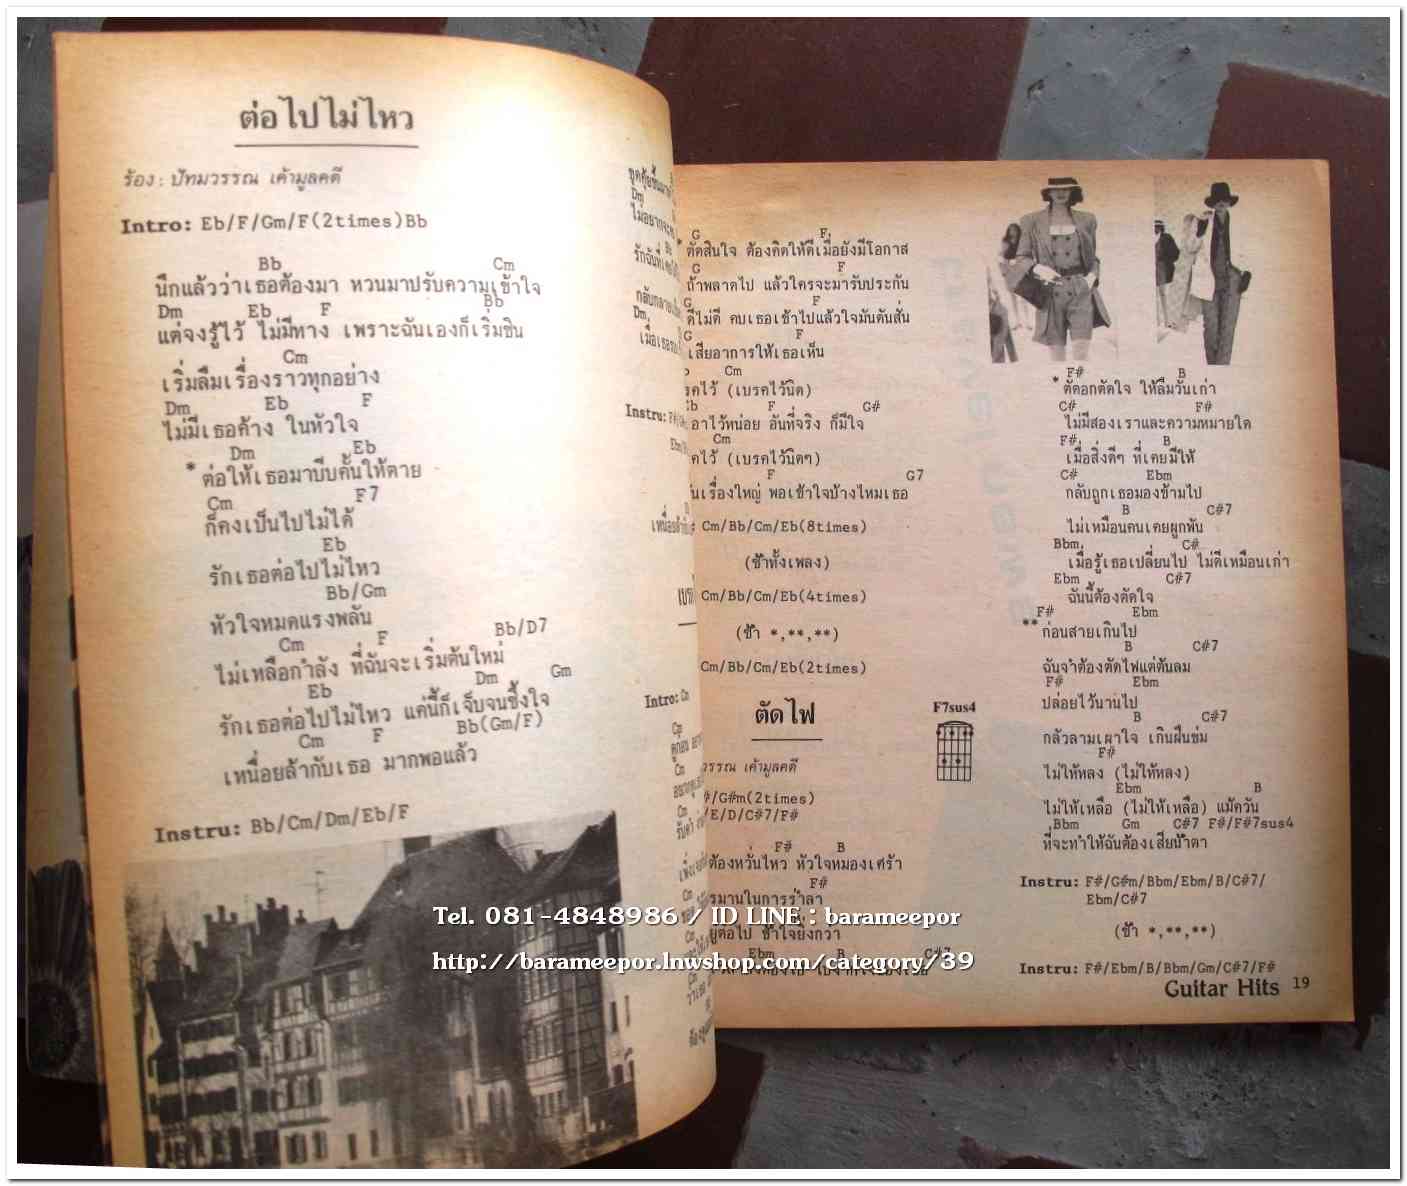 ต่อไปไม่ไหว
ร้อง : ปัทมวรรณ เค้ามูลคดี
Intro: Eb/F/Gm/F(2times)Bb
Bb Cm
นึกแล้วว่าเธอต้องมา หวนมาปรับความเข้าใจ
Dm Eb F Bb
แต่จงรู้ไว้ ไม่มีทาง เพราะฉันเองก็เริ่มชิน
Cm
เริ่มลืมเรื่องราวทุกอย่าง
Dm Eb F
ไม่มีเธอค้าง ในหัวใจ
Dm Eb
* ต่อให้เธอมาบีบคั้นให้ตาย
Cm F7
ก็คงเป็นไปไม่ได้
Eb
รักเธอต่อไปไม่ไหว
Bb/Gm
หัวใจหมดแรงพลัน
Cm F Bb/D7
ไม่เหลือกำลัง ที่ฉันจะเริ่มต้นใหม่
Eb Dm Gm
รักเธอต่อไปไม่ไหว แค่นี้ก็เจ็บจนซึ้งใจ
Cm F Bb(Gm/F)
เหนื่อยล้ากับเธอ มากพอแล้ว
Instru: Bb/Cm/Dm/Eb/F
Dm
ไม่อยากจะ
Bb
Dm
Instru:
Intro: Cm
Cm
Cm
Cm
Cm
Cm
Cm
G F
* ตัดสินใจ ต้องคิดให้ดีเมื่อยังมีโอกาส
G F
ถ้าพลาดไป แล้วใครจะมารับประกัน
G F
ดีไม่ดี คบเธอเข้าไปแล้วใจมันตันสั่น
G F
เสียอาการให้เธอเห็น
Cm
(เบรคไว้นิด)
F G#
เอาไว้หน่อย อันที่จริง ก็มีใจ
Cm
(เบรคไว้นิดๆ)
F G7
เรื่องใหญ่ พอเข้าใจบ้างไหมเธอ
Cm/Bb/Cm/Eb(8times)
(ซ้ำทั้งเพลง)
Cm/Bb/Cm/Eb(4times)
(ซ้ำ *,**,**)
Cm/Bb/Cm/Eb(2times)
ตัดไฟ
F7sus4
วรรณ เค้ามูลคดี
/G#m(2times)
/E/D/C#7/F#
F# B
ต้องหวั่นไหว หัวใจหมองเศร้า
F#
รมานในการร่ำลา
ต่อไป ช้ำใจยิ่งกว่า
Ebm B C#7
F# B
* ตัดอกตัดใจ ให้ลืมวันเก่า
C# F#
ไม่มีสองเราและความหมายใด
F# B
เมื่อสิ่งดีๆ ที่เคยมีให้
C# Ebm
กลับถูกเธอมองข้ามไป
B C#7
ไม่เหมือนคนเคยผูกพัน
Bbm C#
เมื่อรู้เธอเปลี่ยนไป ไม่ดีเหมือนเก่า
Ebm C#7
ฉันนี้ต้องตัดใจ
F# Ebm
** ก่อนสายเกินไป
B C#7
ฉันจำต้องตัดไฟแต่ต้นลม
F# Ebm
ปล่อยไว้นานไป
B C#7
กลัวลามเผาใจ เกินฝืนข่ม
F#
ไม่ให้หลง (ไม่ให้หลง)
Ebm B
ไม่ให้เหลือ (ไม่ให้เหลือ) แม้ควัน
Bbm Gm C#7 F#/F#7sus4
ที่จะทำให้ฉันต้องเสียน้ำตา
Instru: F#/G#m/Bbm/Ebm/B/C#7/
Ebm/C#7
(ซ้ำ *,**,**)
Instru: F#/Ebm/B/Bbm/Gm/C#7/F#
Guitar Hits 19
Tel. 081-4848986 / ID LINE : barameepor
http://barameepor.lnwshop.com/category/39